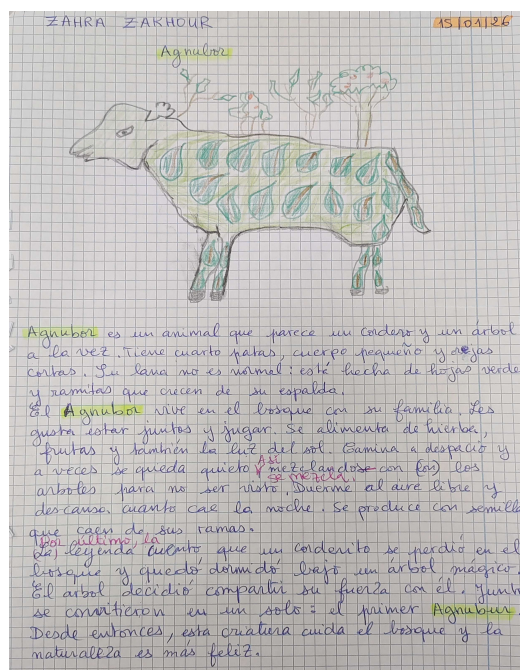 ZAHRA ZAKHOUR
15/01/26
Agnubor
Agnubor es un animal que parece un cordero y un árbol
a la vez. Tiene cuarto patas, cuerpo pequeño y orejas
cortas. Su lana no es normal: esté hecha de hojas verde
y ramitas que crecen de su espalda.
El Agnubor vive en el bosque con su familia. Les
gusta estar juntos y jugar. Se alimenta de hierba,
frutas y también la luz del sol. Camina a despacio y
Así
a veces se queda quieto, mezclandose con (on) los
se mezcla
arboles para no ser visto. Duerme al aire libre y
descansa cuanto cae la noche. Se produce con semilla
que caen de sus ramas.
Por último, la
La leyenda cuento que un corderito se perdió en el
bosque y quedó dormido bajo un árbol mágico.
El arbol decidió compartir su fuerza con él. Junto
se convirtieron en un solo: el primer Agnubur.
Desde entonces, esta criatura cuida el bosque y la
naturaleza es mas feliz.